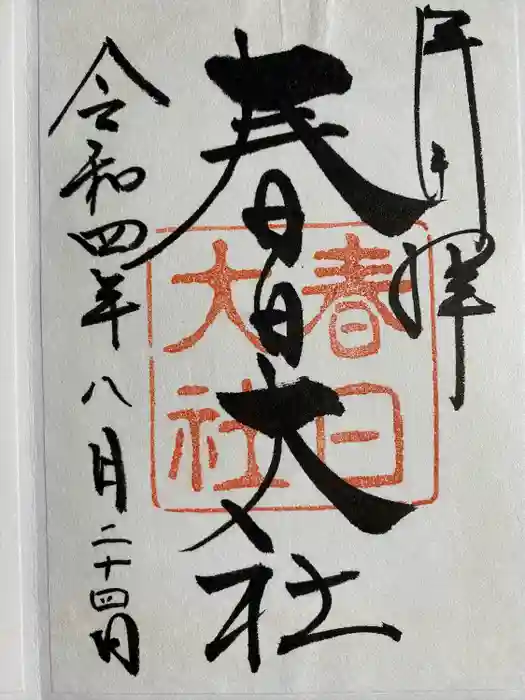 奉拝
春日大社
令和四年八月二十四日
春日
大社